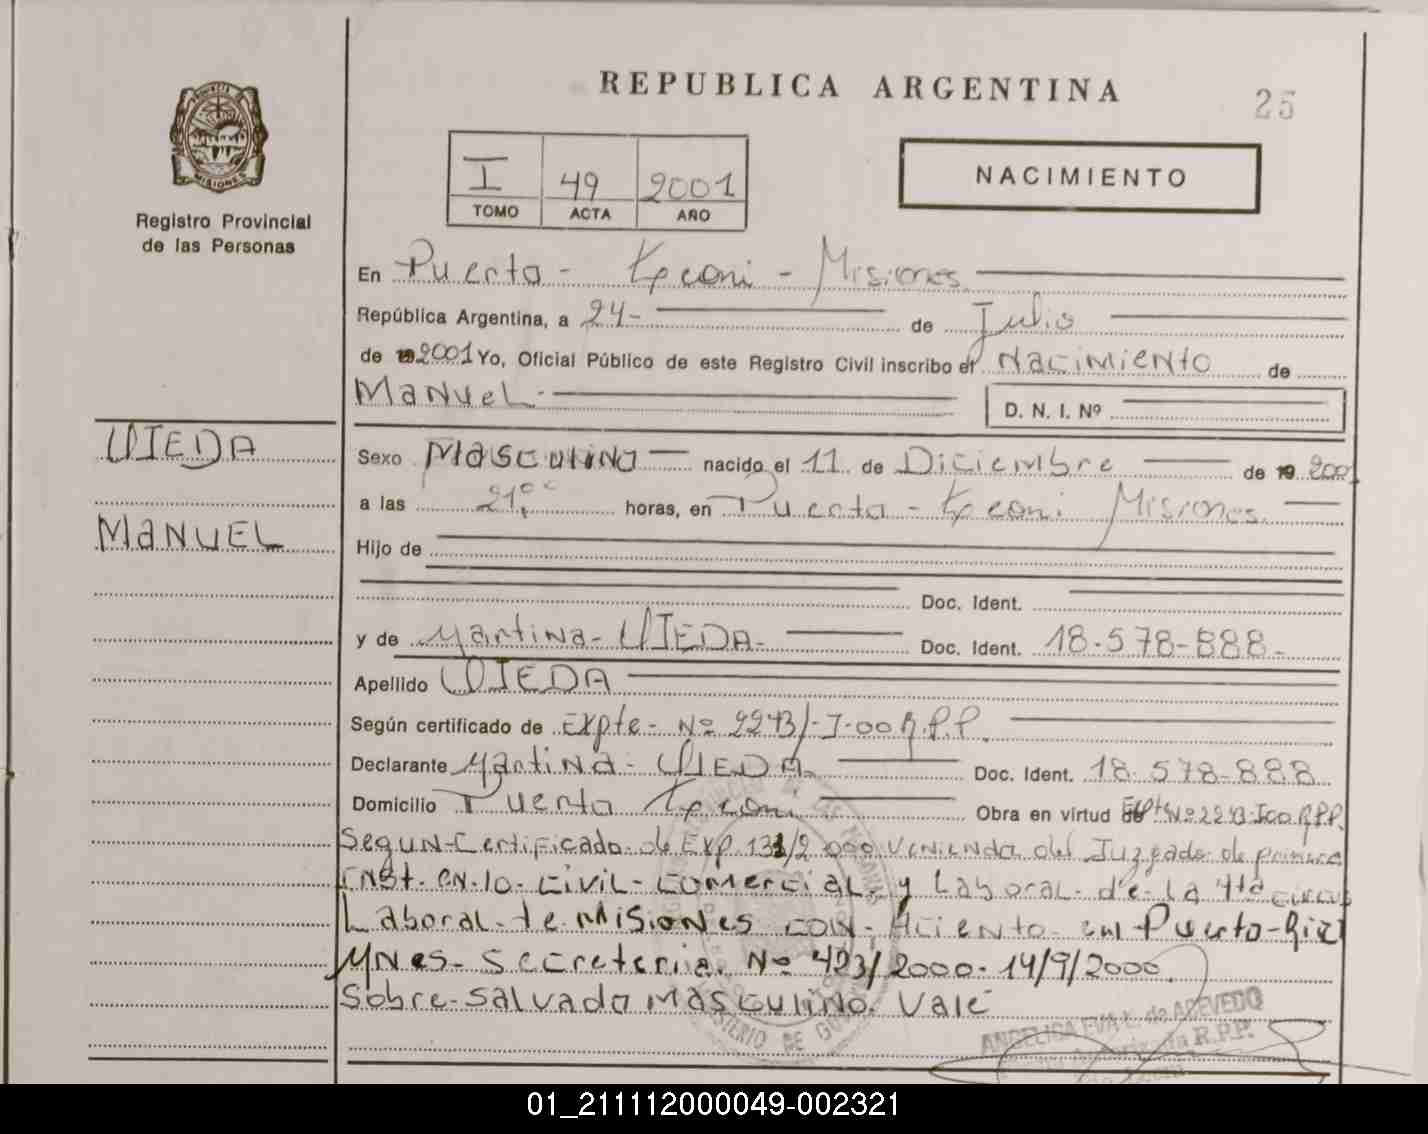 REPUBLICA ARGENTINA
25
MISIONES
Registro Provincial
de las Personas
I 49 2001
TOMO ACTA AÑO
NACIMIENTO
En Puerto - - Misiones
República Argentina, a 24- de Julio
de 2001 Yo, Oficial Público de este Registro Civil inscribo el Nacimiento de
Manuel-
D. N. I. Nº
UJEDA
MANUEL
Sexo Masculino nacido el 11 de Diciembre de 19
a las 21,oo horas, en Puerto - Misiones
Hijo de
Doc. Ident.
y de Martina- UJEDA- Doc. Ident. 18-578-888-
Apellido UJEDA
Según certificado de Expte- Nº R.P.P.
Declarante Martina- UJEDA Doc. Ident. 18.578-888
Domicilio Puerto Obra en virtud R.P.P.
Segun-Certificado-de Exp. /2000 del Juzgado de primera
Inst- en-lo- Civil- Comercial y Laboral- de- La 4ta
Laboral- de Misiones con- Aciento- en Puerto-Rico
Mnes- Secreteria. Nº 423/2000- 14/9/2000
Sobre-Salvado Masculino. Vale
ANGELICA EVA L. de ACEVEDO
R.P.P.
01_211112000049-002321